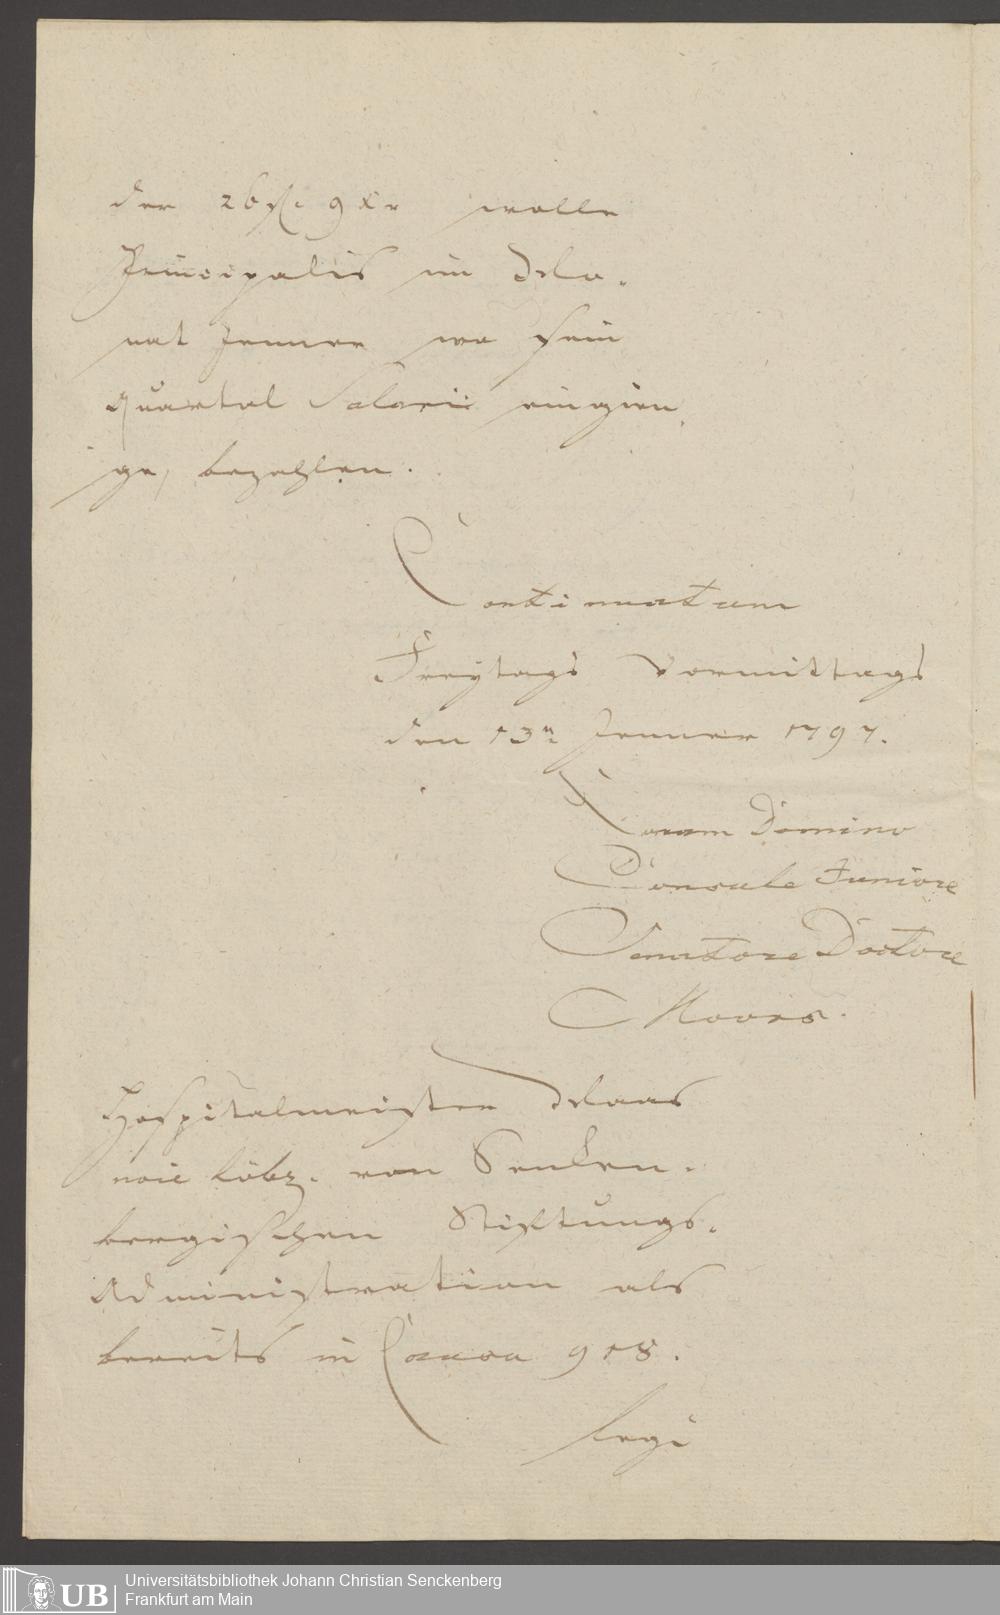 der 26 fl. 9 Xr wolle
Principalis im Mo-
nat Jenner wo sein
quartal Salarii eingien-
ge, bezahlen.
Continuatum
Freytags Vormittags
den 13n Jenner 1797.
Coram Domino
Consule Juniore
Senatore Doctore
Moors.
Hospitalmeister Maas
noie löbl. von Senken-
bergischen Stiftungs-
Administration als
bereits in Causa 918.
legi
Universitätsbibliothek Johann Christian Senckenberg
Frankfurt am Main
UB